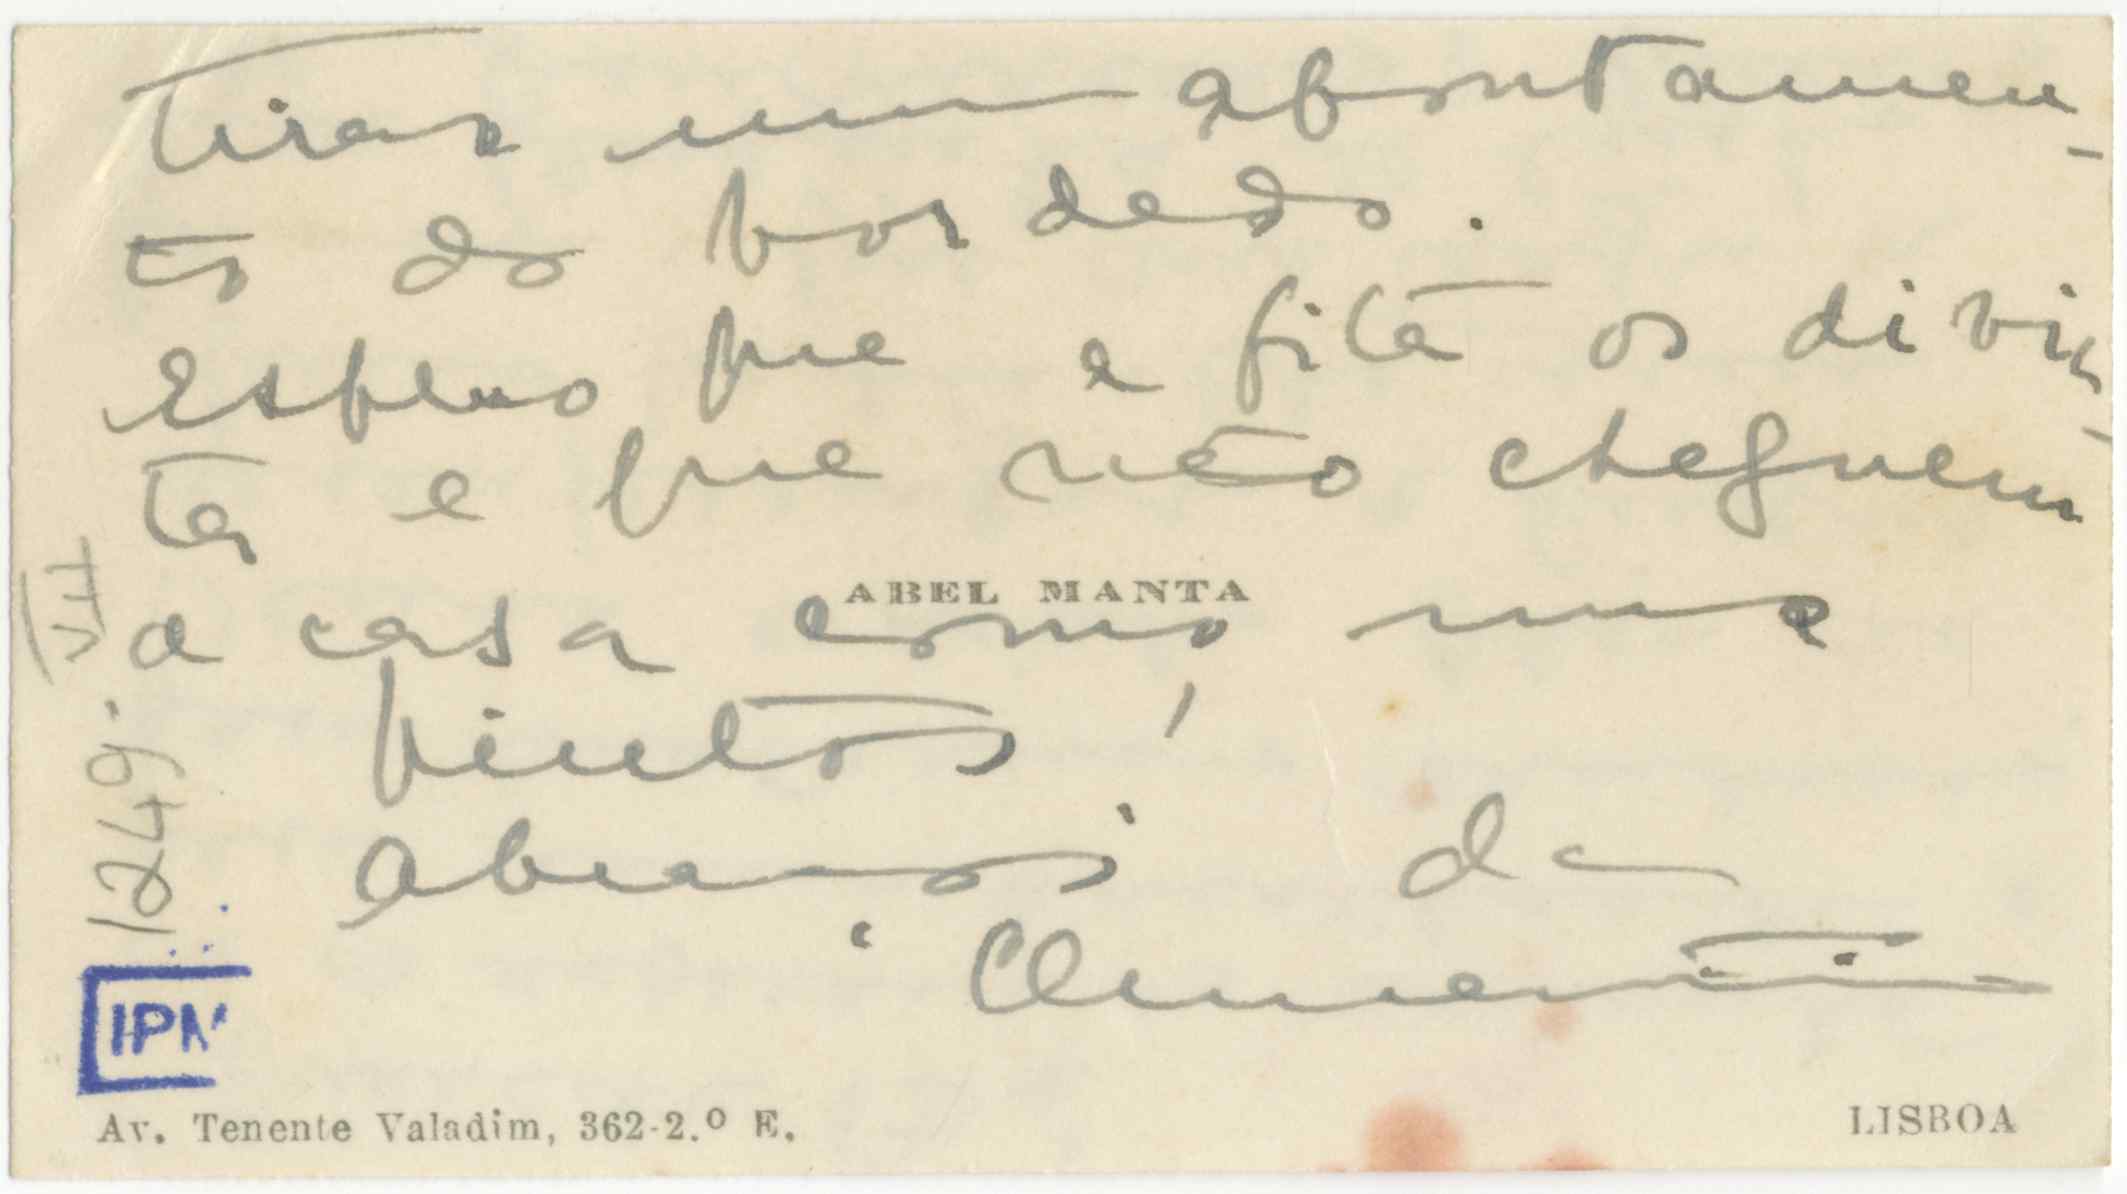 tirar um apontamen-
to do bordado.
Espero que a fita os divir-
ta e que não cheguem
ABEL MANTA
a casa como uns
pintos!
Abraços da
Clementina
VII
1249.
IPM
Av. Tenente Valadim, 362-2.º E.
LISBOA